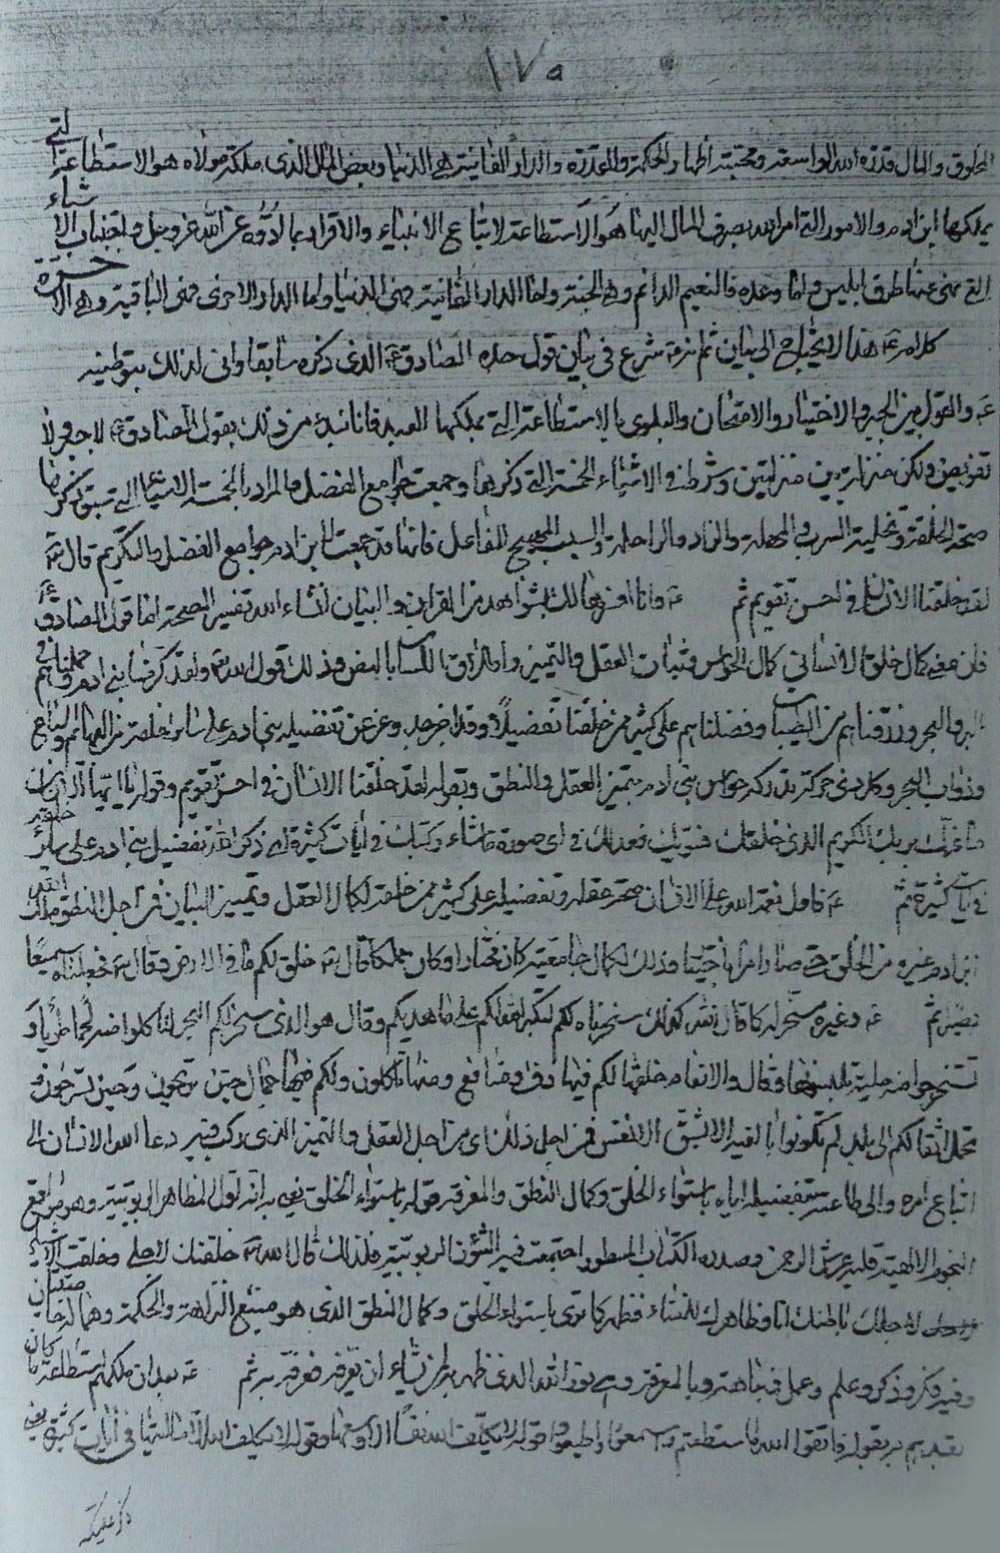 ١٧٥
المخلوق والمال قدرة الله الواسعة ومحبته اظهار الحكمة والقدرة والدار الفانية هي الدنيا وبعض المال الذي ملكه مولاه هو الاستطاعة التي
يملكها ابن ادم والامور التي امر الله بصرف المال اليها هو الاستطاعة لاتباع الانبياء والاقرار بما ادوه عن الله عز وجل واجتناب الاشياء
التي نهى عنها طرق ابليس واما وعده فالنعيم الدائم وهي الجنة واما الدار الفانية فهي الدنيا واما الدار الاخرى فهي الباقية وهي الاخرة
كلامه هذا لا يحتاج الى بيان ثم شرع في بيان قول جده الصادق الذي ذكره سابقا واتى لذلك بتوطئة
والقول بين الجبر والاختيار والامتحان والبلوى بالاستطاعة التي يملكها العبد من ذلك بقول الصادق لا جبر ولا
تفويض ولكن منزلة بين منزلتين وشرطه في الاشياء الخمسة التي ذكرها وجمعت جوامع الفضل والمراد بالخمسة الاشياء التي سبق ذكرها
صحة الخلقة وتخلية السرب والمهلة والزاد والراحلة والسبب المهيج للفاعل فانها قد جمعت لابن ادم جوامع الفضل والتكريم قال
لقد خلقنا الانسان في احسن تقويم ثم وانا مفسرها لك بشواهد من القران والبيان انشاء الله تفسير الصحة اما قول الصادق
فان معنى كمال خلق الانساني كمال الحواس وثبات العقل والتمييز واطلاق اللسان بالنطق وذلك قول الله ولقد كرمنا بني ادم وحملناهم في
البر والبحر ورزقناهم من الطيبات وفضلناهم على كثير ممن خلقنا تفضيلا وقد اخبر جل وعز عن تفضيله بني ادم على سائر خلقه من البهائم والسباع
ودواب البحر وكل ذي حركة تدركه حواس بني ادم بتمييز العقل والنطق وبقوله لقد خلقنا الانسان في احسن تقويم وقوله يا ايها الانسان
ما غرك بربك الكريم الذي خلقك فسويك فعدلك في اي صورة ما شاء ركبك في ايات كثيرة تفضيل بني ادم على سائر خلقه
في ايات كثيرة ثم فاول نعمة الله على الانسان صحة عقله وتفضيله على كثير ممن خلقه لكمال العقل وتمييز البيان فمن اجل النطق ملك
ابن ادم غيره من الخلق حتى صار وذلك لكمال جامعيته كان مختارا وكان كما قال خلق لكم ما في الارض وقال فجعلناه سميعا
بصيرا ثم وغيره مسخر له كما قال الله كذلك سخرناه لكم لتكبروا الله على ما هديكم وقال هو الذي سخر لكم البحر لتاكلوا منه لحما طريا و
تستخرجوا منه حلية تلبسونها وقال والانعام خلقها لكم فيها دفء ومنافع ومنها تاكلون ولكم فيها جمال حين تريحون وحين تسرحون و
تحمل اثقالكم الى بلد لم تكونوا بالغيه الا بشق الانفس فمن اجل ذلك اي من اجل العقل والتمييز الذي ركب فيه دعا الله الانسان الى
اتباع امره والى طاعته بتفضيله اياه باستواء الخلق وكمال النطق والمعرفة قوله باستواء الخلق يعني به انه اول المظاهر الربوبية وهو مواقع
النجوم الالهية قلبه عرش الرحمن وصدره الكتاب المسطور اجتمعت فيه الشؤن الربوبية فلذلك قال الله خلقتك لاجلي وخلقت الاشياء
لاجلك باطنك انا وظاهرك للفناء فظهر كما ترى باستواء الخلق وكمال النطق الذي هو منبع النزاهة والحكمة وهما خاصيتان
وفيه فكر وذكر وعلم وعمل ونباهة وبالمعرفة وهي نور الله الذي ظهر به لمن شاء ان يعرفه فعرفه به ثم بعد ان ملكهم استطاعة ما كان
تعبدهم به بقوله فاتقوا الله ما استطعتم واسمعوا واطيعوا وقوله لا يكلف الله نفسا الا وسعها وقوله لا يكلف الله الا ما اتيها في ايات كثيرة يعني